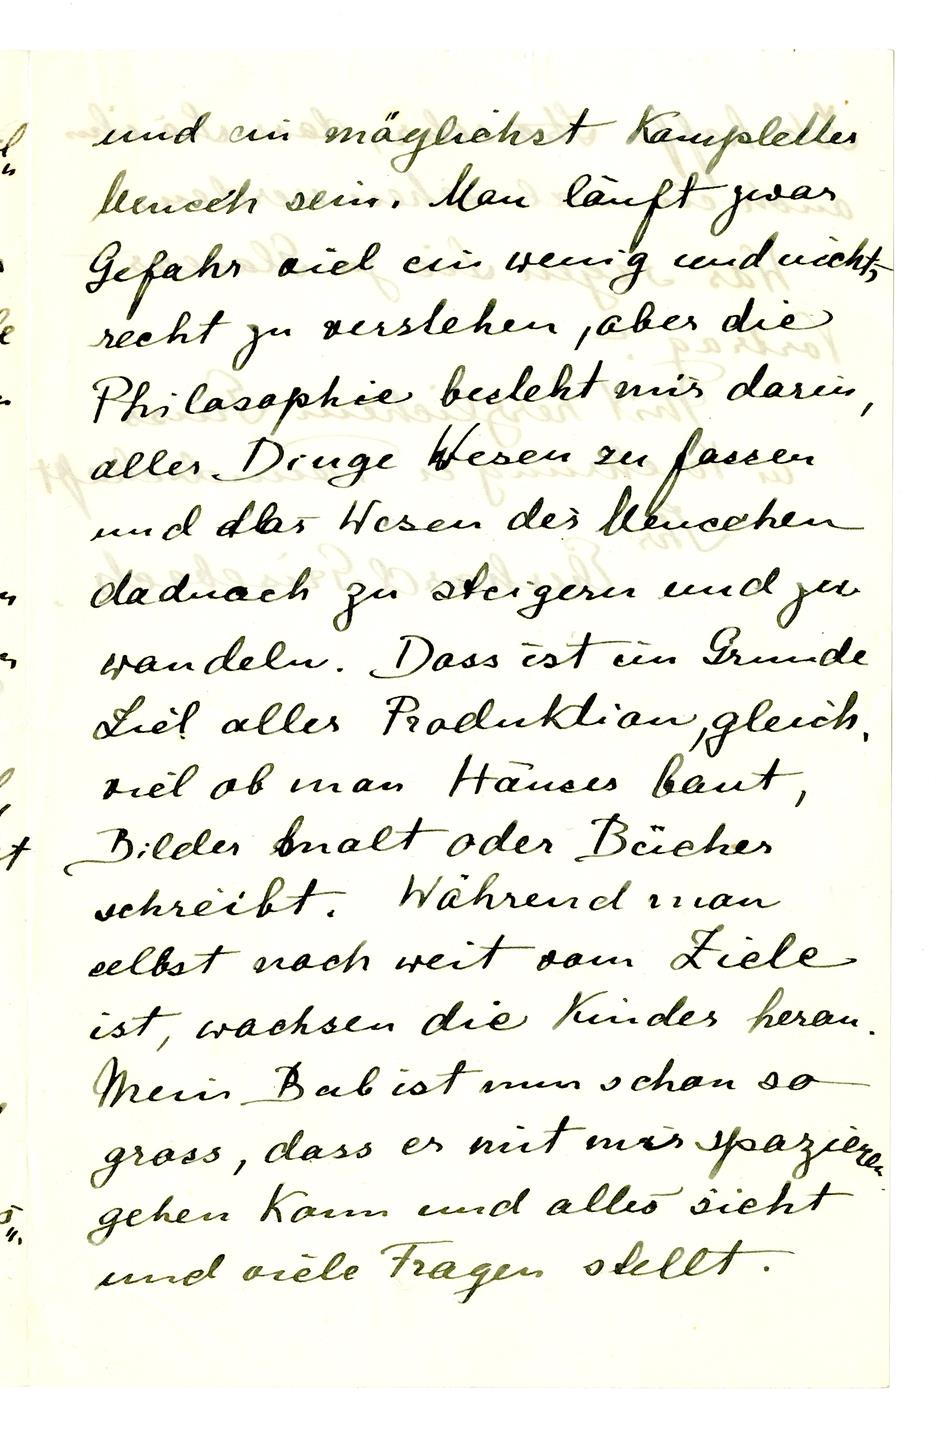 und ein möglichst kompletter
Mensch sein. Man läuft zwar
Gefahr viel ein wenig und nichts
recht zu verstehen, aber die
Philosophie besteht mir darin,
aller Dinge Wesen zu fassen
und das Wesen des Menschen
dadurch zu steigern und zu
wandeln. Dass ist im Grunde
Ziel aller Produktion, gleich,
viel ob man Häuser baut,
Bilder malt oder Bücher
schreibt. Während man
selbst noch weit vom Ziele
ist, wachsen die Kinder heran.
Mein Bub ist nun schon so
gross, dass er mit mir spazieren
gehen kann und alles sieht
und viele Fragen stellt.